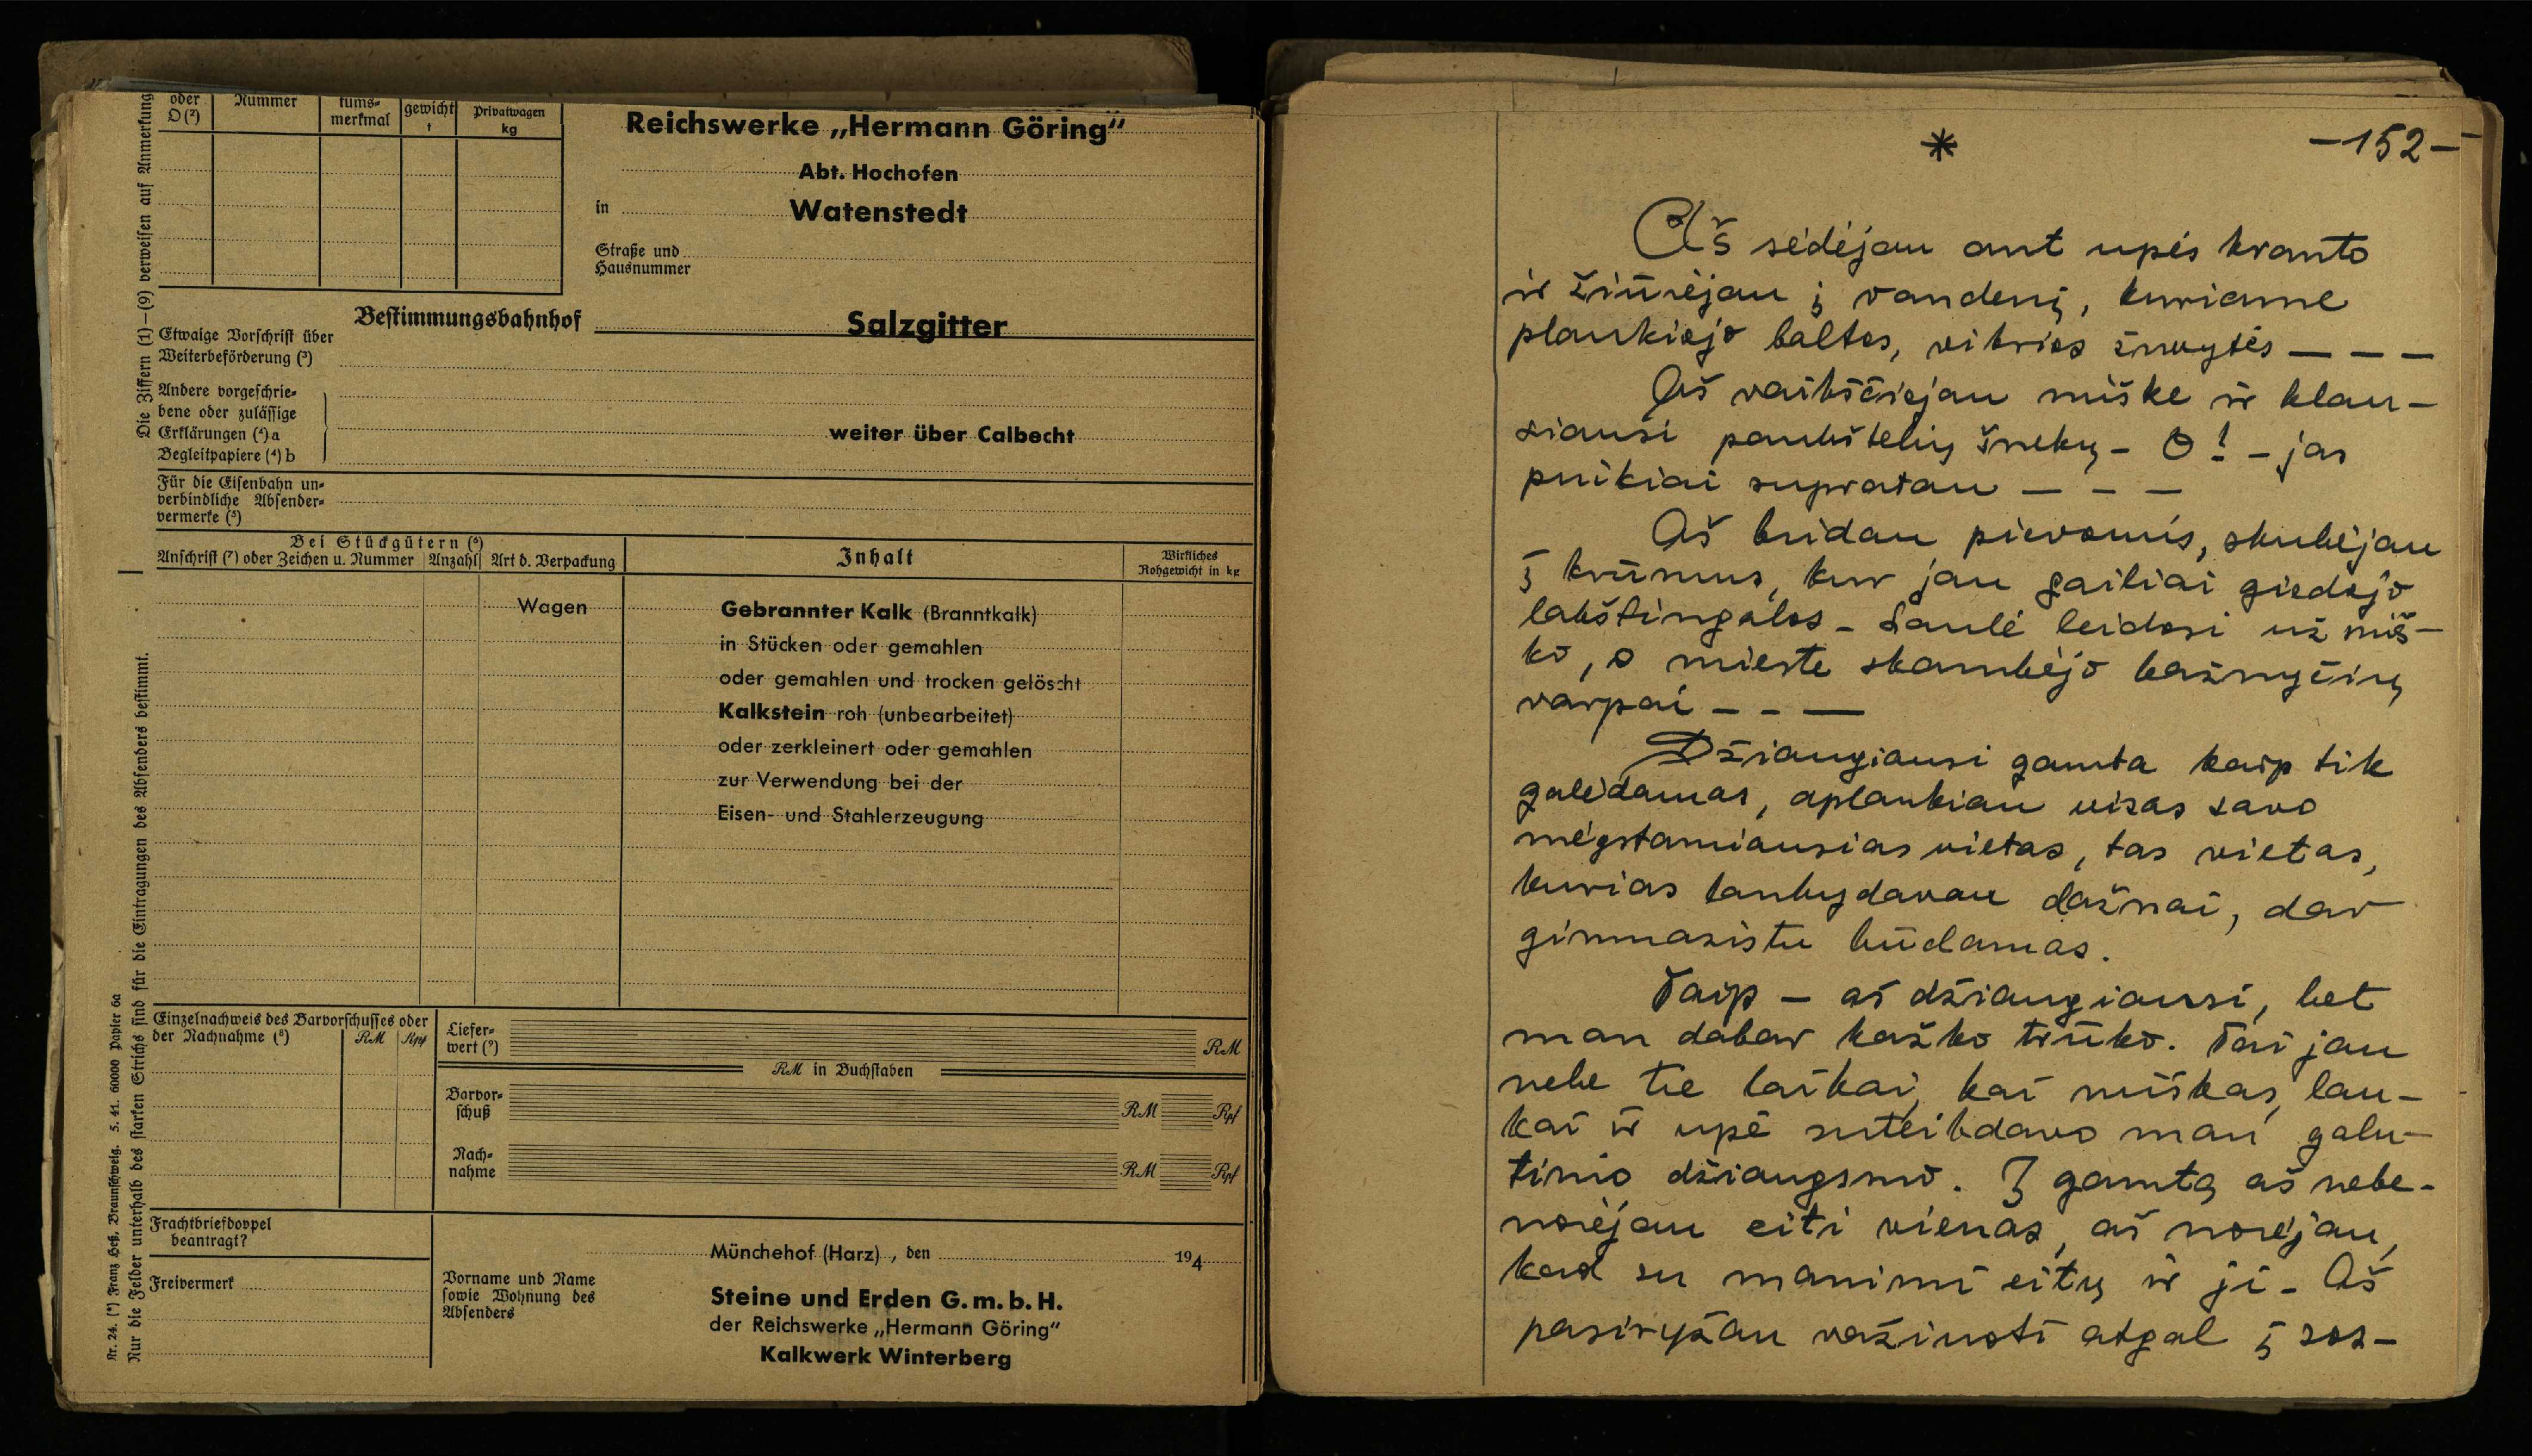 oder
D (²)
Nummer
tums=
merkmal
gewicht
t
Privatwagen
kg
Die Ziffern (1)—(9) verweisen auf Anmerkung
Reichswerke „Hermann Göring“
Abt. Hochofen
in Watenstedt
Straße und
Hausnummer
Bestimmungsbahnhof Salzgitter
Etwaige Vorschrift über
Weiterbeförderung (³)
Andere vorgeschrie=
bene oder zulässige
Erklärungen (⁴) a
Begleitpapiere (⁴) b
weiter über Calbecht
Für die Eisenbahn un=
verbindliche Absender=
vermerke (⁵)
Bei Stückgütern (⁶)
Anschrift (⁷) oder Zeichen u. Nummer
Anzahl
Art d. Verpackung
Inhalt
Wirkliches
Rohgewicht in kg
Wagen
Gebrannter Kalk (Branntkalk)
in Stücken oder gemahlen
oder gemahlen und trocken gelöscht
Kalkstein roh (unbearbeitet)
oder zerkleinert oder gemahlen
zur Verwendung bei der
Eisen- und Stahlerzeugung
Einzelnachweis des Barvorschusses oder
der Nachnahme (⁸)
RM
Rpf
Liefer=
wert (⁹)
RM
RM in Buchstaben
Barvor=
schuß
RM
Rpf
Nach=
nahme
RM
Rpf
Frachtbriefdoppel
beantragt?
Freivermerk
Münchehof (Harz), den 194
Vorname und Name
sowie Wohnung des
Absenders
Steine und Erden G.m.b.H.
der Reichswerke „Hermann Göring“
Kalkwerk Winterberg
Nr. 24. (*) Franz Heß, Braunschweig. 5. 41. 60000 Papier 6a
Nur die Felder unterhalb des starken Strichs sind für die Eintragungen des Absenders bestimmt.
* —152—
Aš sėdėjau ant upės kranto
ir žiūrėjau į vandenį, kuriame
plaukiojo baltos, vikrios žuvytės — — —
Aš vaikščiojau miške ir klau-
siausi paukštelių šnekų – O! – jas
puikiai supratau — — —
Aš bridau pievomis, skubėjau
į krūmus, kur jau gailiai giedojo
lakštingalos – Saulė leidosi už miš-
ko, o mieste skambėjo bažnyčių
varpai – – —
Džiaugiausi gamta kaip tik
galėdamas, aplankiau visas savo
mėgstamiausias vietas, tas vietas,
kurias lankydavau dažnai, dar
gimnazistu būdamas.
Taip – aš džiaugiausi, bet
man dabar kažko trūko. Tai jau
nebe tie laikai, kai miškas, lau-
kai ir upė suteikdavo man galu-
tinio džiaugsmo. Į gamtą aš nebe-
norėjau eiti vienas, aš norėjau,
kad su manimi eitų ir ji – Aš
pasiryžau važiuoti atgal į sos-